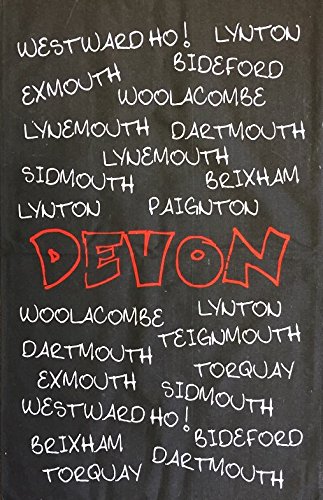 WESTWARD HO! LYNTON
EXMOUTH BIDEFORD
WOOLACOMBE
LYNEMOUTH DARTMOUTH
LYNEMOUTH
SIDMOUTH BRIXHAM
LYNTON PAIGNTON
DEVON
WOOLACOMBE LYNTON
DARTMOUTH TEIGNMOUTH
EXMOUTH TORQUAY
SIDMOUTH
WESTWARD HO!
BRIXHAM BIDEFORD
TORQUAY DARTMOUTH